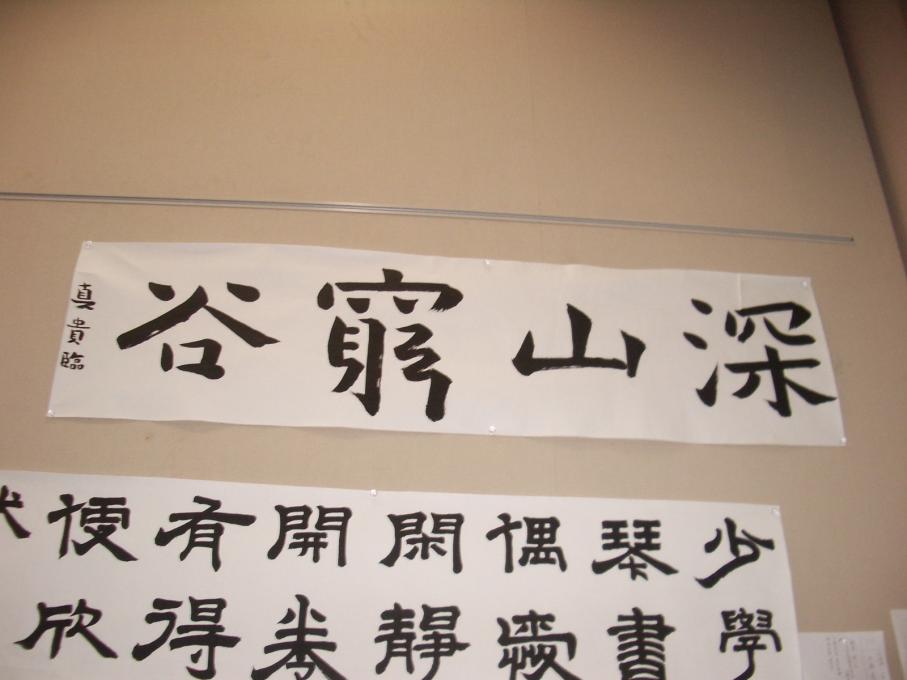 深山窮谷
真貴臨
少學
琴書
偶愛
閑靜
開卷
有得
便欣